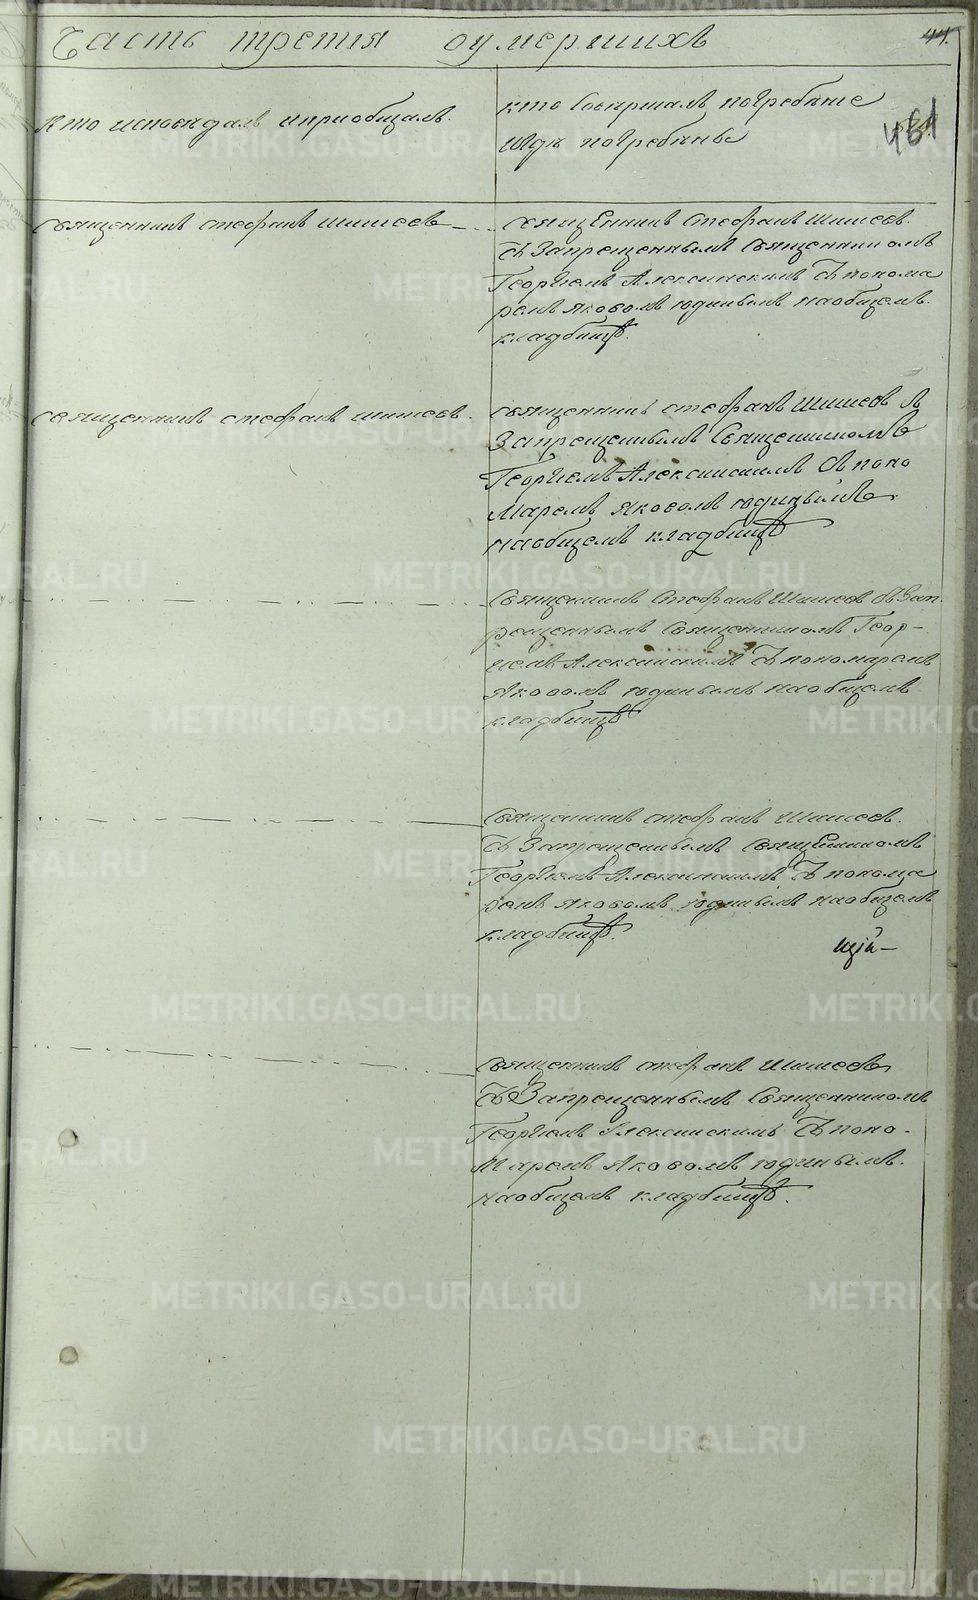 Часть третия о умершихъ
44.
461
Кто исповедалъ и приобщалъ.
кто совершалъ погребение
и где погребены
Священникъ Стефанъ Шишевъ
Священникъ Стефанъ Шишевъ.
съ Запрещеннымъ Священникомъ
Георгіемъ Алексинскимъ съ понома
ремъ Яковомъ Юдинымъ на общемъ
кладбищѣ.
Священникъ Стефанъ Шишевъ.
Священникъ Стефанъ Шишевъ съ
Запрещеннымъ Священникомъ
Георгіемъ Алексинскимъ съ поно
маремъ Яковомъ Юдинымъ
на общемъ кладбищѣ
Священникъ Стефанъ Шишевъ съ Зап
рещеннымъ Священникомъ Геор-
гіемъ Алексинскимъ съ пономаремъ
Яковомъ Юдинымъ на общемъ
кладбищѣ
Священникъ Стефанъ Шишевъ.
съ Запрещеннымъ Священникомъ
Георгіемъ Алексинскимъ съ понома
ремъ Яковомъ Юдинымъ на общемъ
кладбищѣ.
Священникъ Стефанъ Шишевъ
съ Запрещеннымъ Священникомъ
Георгіемъ Алексинскимъ съ поно-
маремъ Яковомъ Юдинымъ.
на общемъ кладбищѣ.
METRIKI.GASO-URAL.RU